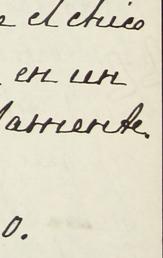 el chico
en un
lamente.
o.